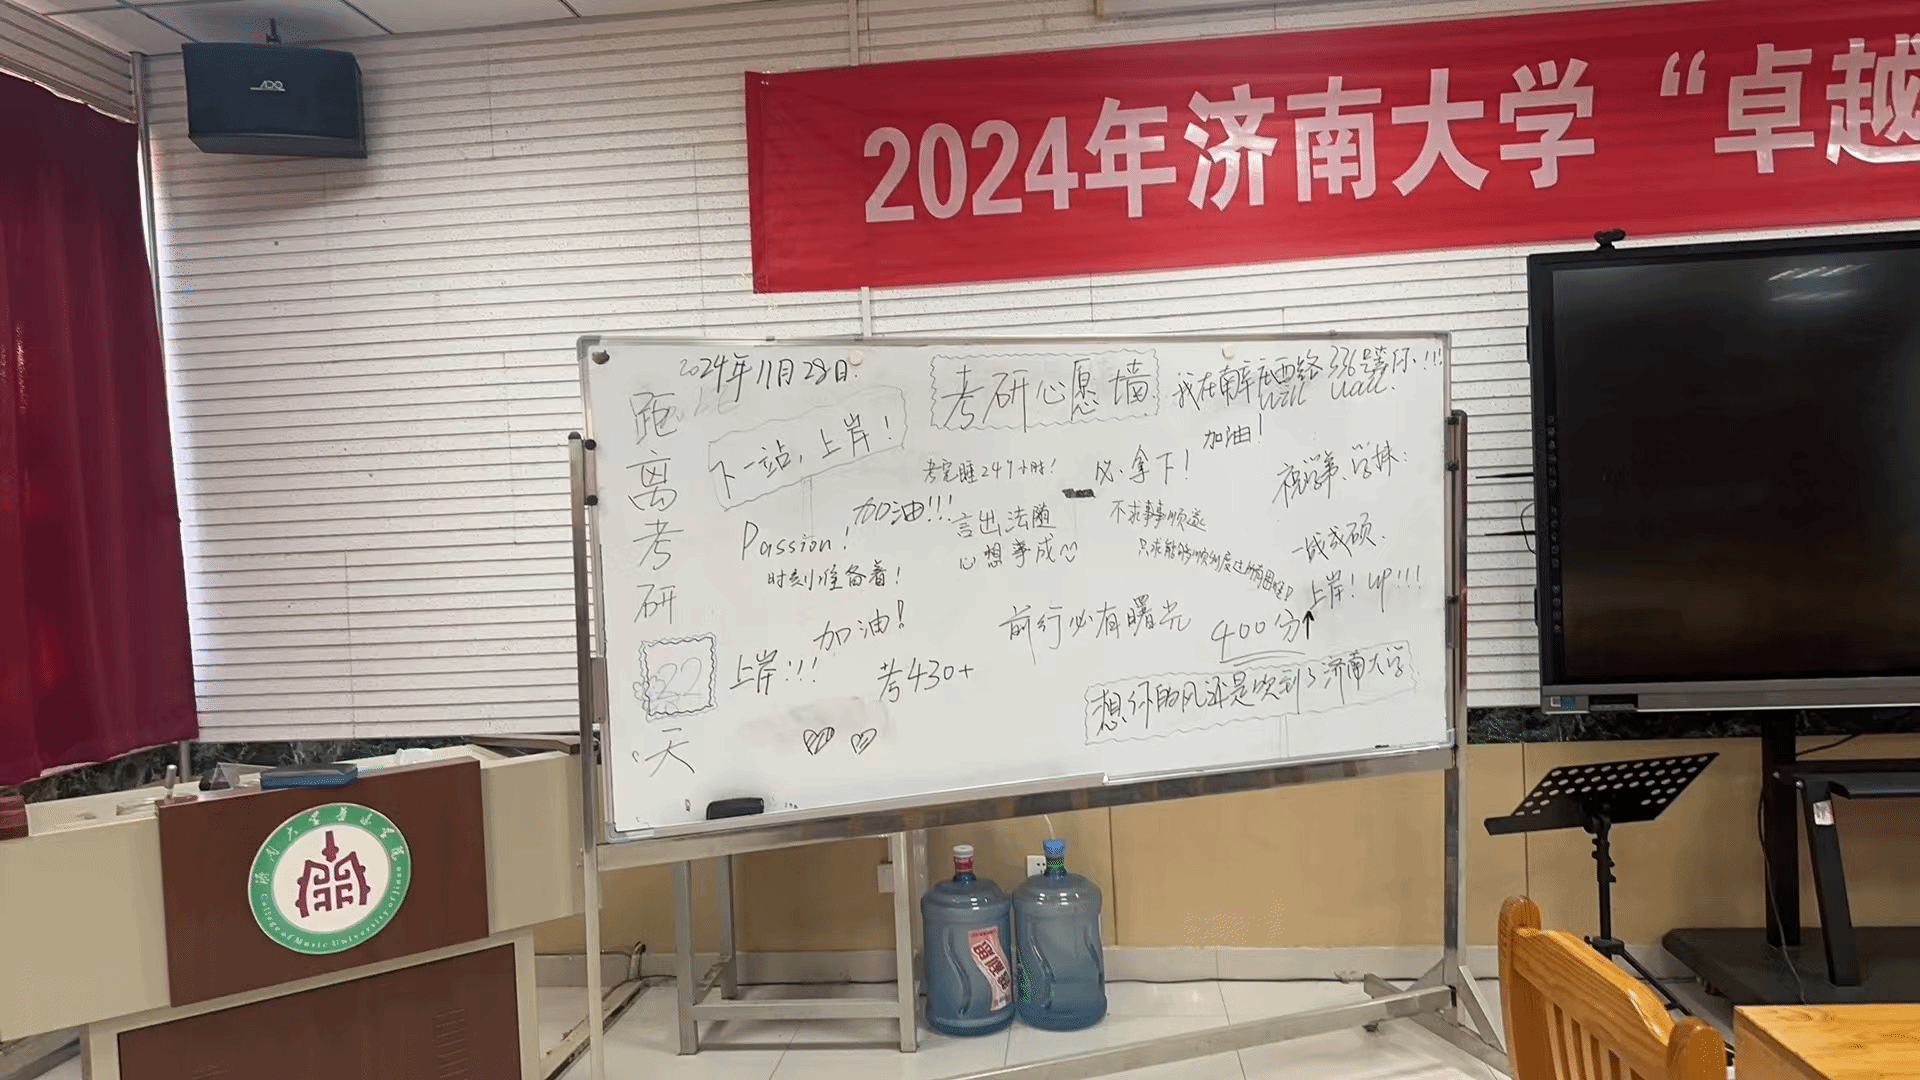 ADQ
2024年济南大学“卓越
2024年11月28日.
考研心愿墙
我在南辛庄西路336号等你.!!!
will wait.
距离考研
22
天
下一站,上岸!
加油!
考完睡24个小时!
必拿下!
祝学弟、学妹:
一战成硕、
上岸!up!!!
加油!!!
Passion!
时刻准备着!
言出法随
心想事成
不求事事顺遂
只求能够顺利度过所有困难!
加油!
前行必有曙光
400分↑
上岸!!!
考430+
想你的风还是吹到了济南大学
济南大学音乐学院
College of Music University of Jinan